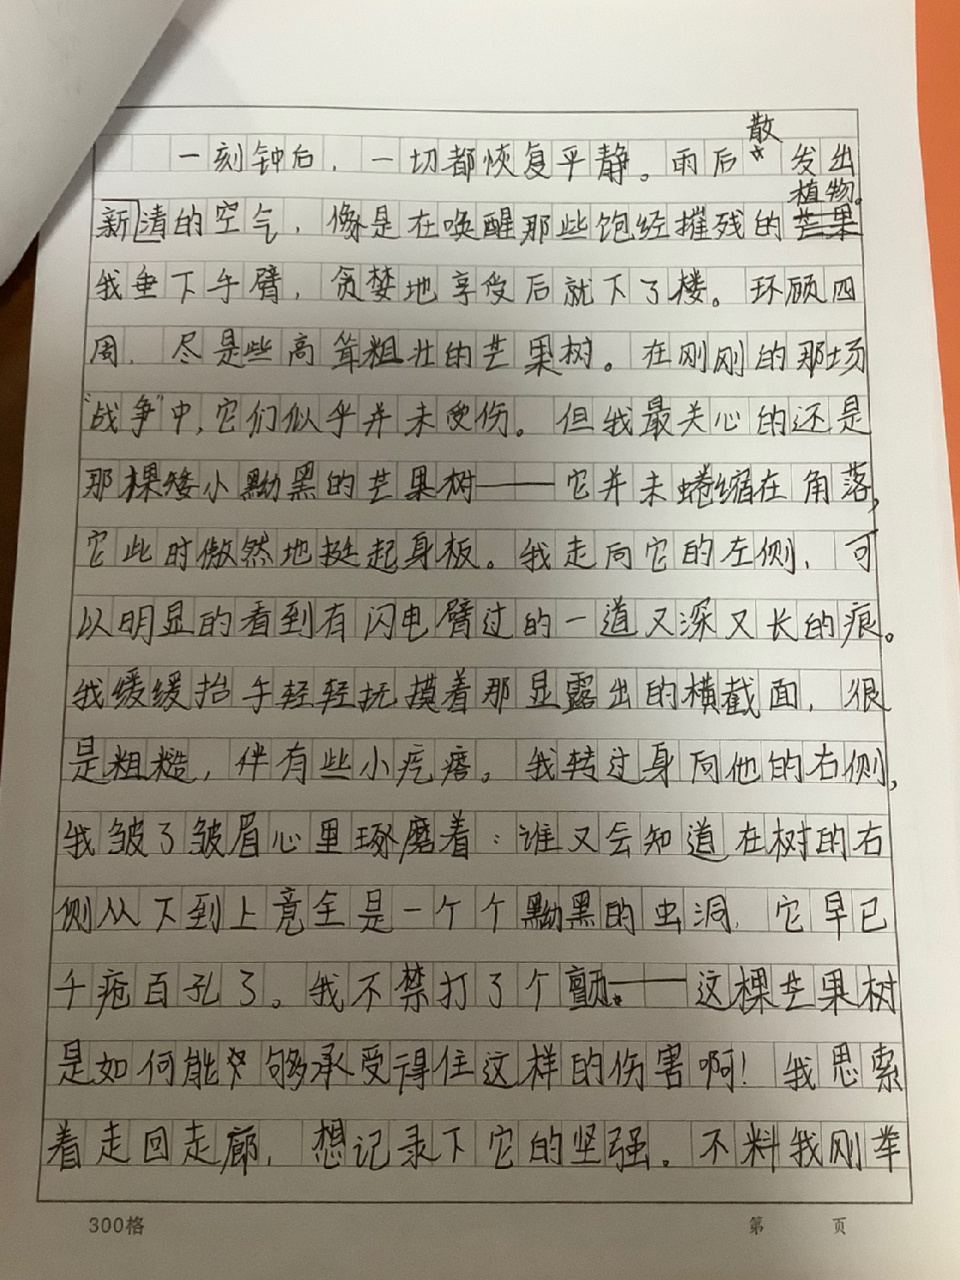 一刻钟后，一切都恢复平静。雨后散发出
新清的空气，像是在唤醒那些饱经摧残的植物。
我垂下手臂，贪婪地享受后就下了楼。环顾四
周，尽是些高耸粗壮的芒果树。在刚刚的那场
“战争”中，它们似乎并未受伤。但我最关心的还是
那棵矮小黝黑的芒果树——它并未蜷缩在角落，
它此时傲然地挺起身板。我走向它的左侧，可
以明显的看到有闪电臂过的一道又深又长的痕。
我缓缓抬手轻轻抚摸着那显露出的横截面，很
是粗糙，伴有些小疙瘩。我转过身向他的右侧，
我皱了皱眉心里琢磨着：谁又会知道在树的右
侧从下到上竟全是一个个黝黑的虫洞，它早已
千疮百孔了。我不禁打了个颤——这棵芒果树
是如何能够承受得住这样的伤害啊！我思索
着走回走廊，想记录下它的坚强。不料我刚举
300格
第 页